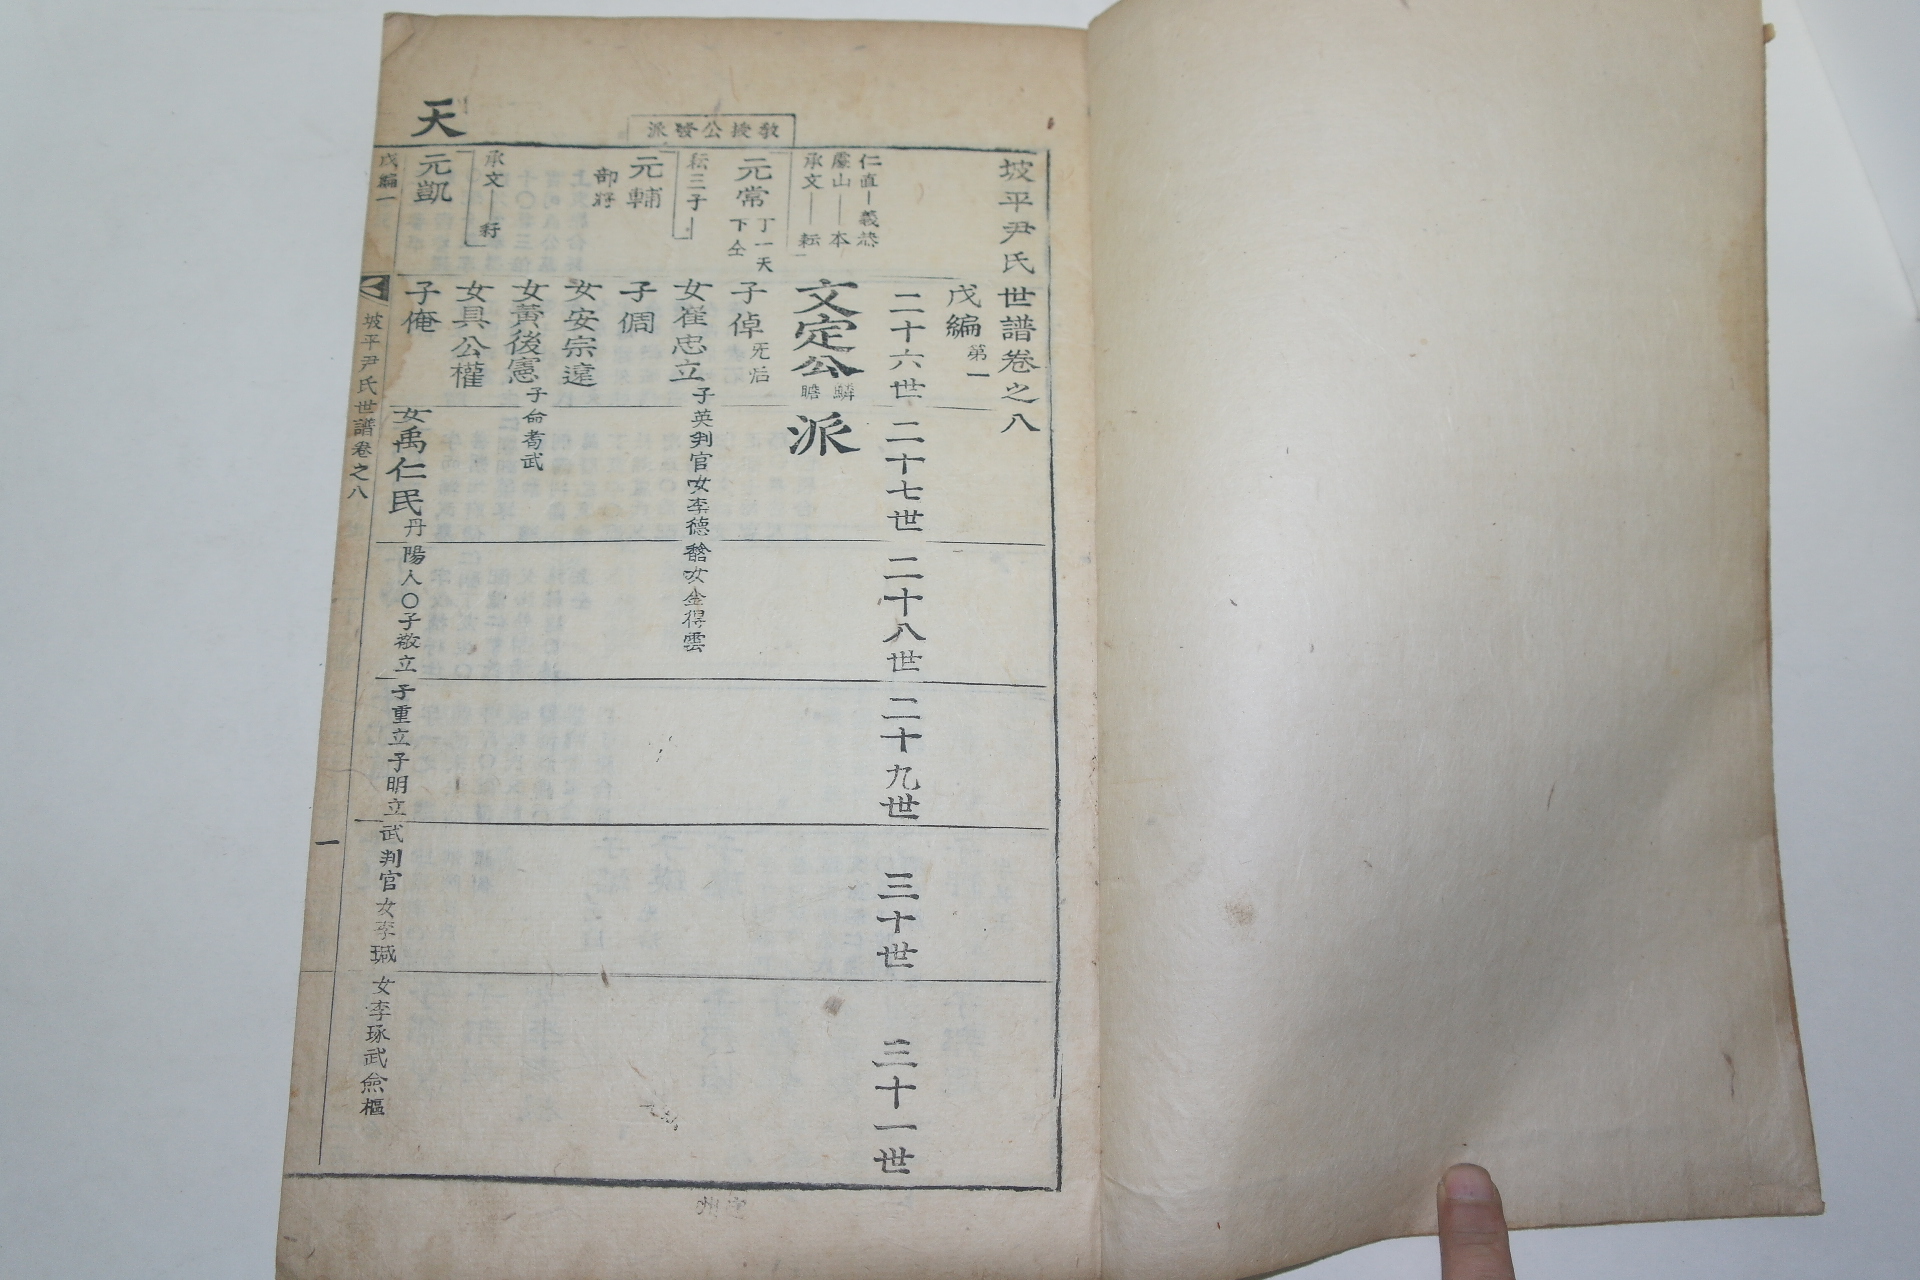 坡平尹氏世譜卷之八
戊編 第一
二十六世 二十七世 二十八世 二十九世 三十世 三十一世
敎授公發派
仁直 義
山 本
承文 耘
文定公 派
元常 丁一天 下仝
子倬 死后
耘三子
女崔忠立 子英判官 女李德 女金得雲
元輔 部將
子倜
女安宗達
承文 耔
女黃後憲 子 武
女具公權
天
元凱
子俺
女禹仁民 丹陽人〇子敬立 子重立 子明立武判官 女李珹 女李琢武僉樞
戊編一
坡平尹氏世譜卷之八
一